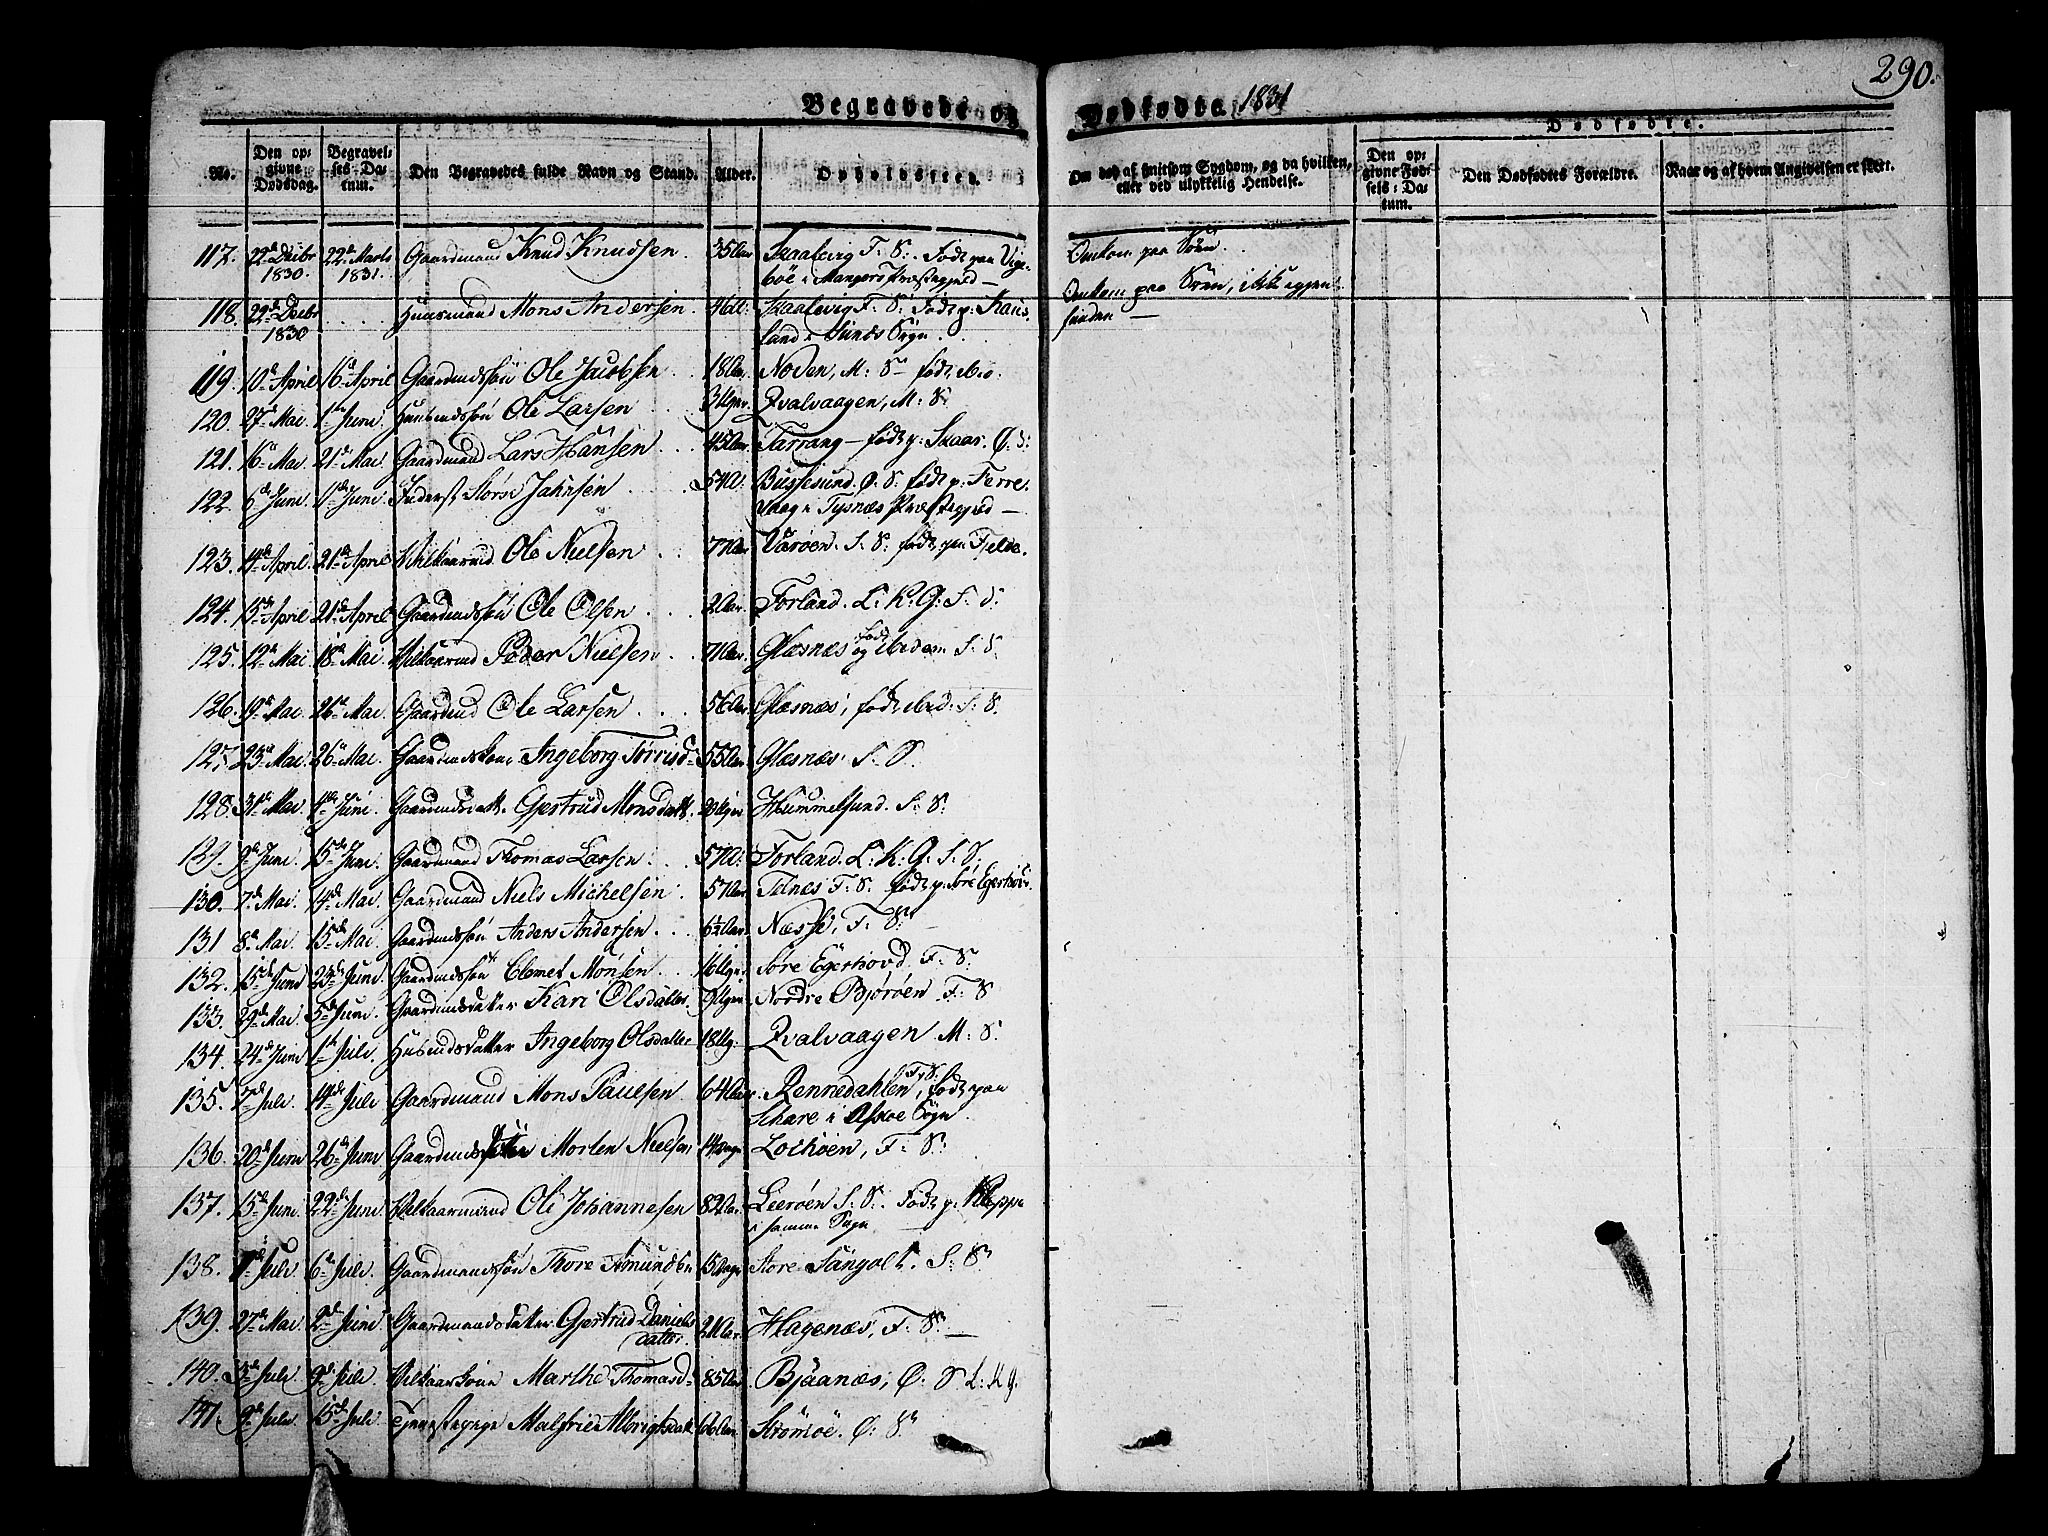 290.
Begravede og Dødfødte 1831
Dødfødte.
No. Den opgivne Dødsdag. Begravelses-Datum. Den Begravedes fulde Navn og Stand. Alder. Opholdssted. Om død af smitsom Sygdom, og da hvilken, eller ved ulykkelig Hendelse. Den opgivne Fødsels-Datum. Den Dødfødtes Forældre. Naar og af hvem Angivelsen er skeet.
117. 22de Decbr 22de Marts Gaardmand Knud Knudsen 35 Aar Skaalevig F: S: Født paa
1830. 1831. i Mangers Præstegjeld — Omkom paa Søen.
118. 22de Decbr Huusmand Mons Andersen 46 A: Skaalevig F: S: Født p:
1830 land i Sunds Sogn. Omkom paa Søen, ikke igjenfunden —
119. 10de April 16de April Gaardmdssøn Ole Jacobsen 18 Aar. Noden, M: S: født ibid.
120. 27de Mai. 1ste Juni. Huusmdssøn Ole Larsen 3 Uger. Qvalvaagen, M: S:
121. 16de Mai 21de Mai Gaardmand Lars Hansen 45 Aar Tarrang — født p: Skaar. Ø: S:
122. 6te Juni 11te Juni Inderst Siørs Jahnsen 57 A: Bussesund. Ø. S: født p: Ferre-
vaag i Tysnæs Præstegjeld —
123. 14de April. 21de April Vilkaarmd Ole Nielsen 77 Aar Varøen. S: S: født paa Fjelde.
124. 15de April 21de April Gaardmdssøn Ole Olsen 2 Aar. Forland. L: K: G: S: S:
125. 12te Mai 18de Mai Vilkaarmd Peder Nielsen 71 Aar. Glæsnæs og født ibidem S: S.
126. 19de Mai 26de Mai. Gaardmd Ole Larsen 56 Aar Glæsnæs, født ibid. S: S.
127. 23de Mai. 26de Mai. Gaardmdskone Ingeborg Torrisd: 55 Aar. Glæsnæs S: S.
128. 31te Mai 4de Juni Gaardmdsdatt. Gjertrud Monsdatt. Uger Hummelsund. S: S:
129. 9de Juni. 15de Juni. Gaardmand Thomas Larsen 57 A: Forland. L: K: G: S. S.
130. 7de Mai 14de Mai. Gaardmand Niels Michelsen 57 Aar Telnæs F: S. født p: Søre Egerhovd
131 8de Mai. 15de Mai Gaardmdssøn Anders Andersen 6½ Aar. Næsse, F: S:
132. 15de Juni 23de Juni. Gaardmdssøn Clemet Monsen 16 Uger Søre Egerhovd. F: S.
133. 29de Mai 5te Juni. Gaardmdsdatter Kari Olsdatter 9 Uger Nordre Bjørøen F: S
134. 24de Juni 1ste Juli. Husmdsdatter Ingeborg Olsdatter 18 Ug: Qvalvaagen M: S.
135. 7de Juli. 14de Juli Gaardmand Mons Paulsen 64 Aar. Rennedahlen, F: S: født paa
Schare i Askøe Sogn.
136. 20de Juni 26de Juni Gaardmdssøn Morten Nielsen 14 Dage Lochøen, F: S:
137. 15de Juni. 22de Juni. Vilkaarmand Ole Johannesen 82 Aar. Leerøen S: S. Født p: Kleppe
i samme Sogn
138. 1ste Juli 6te Juli. Gaardmandssøn Thore Amundsen 15 Dage Store Sangolt. S: S:
139. 27de Mai 2den Juni Gaardmandsdatter Gjertrud Daniels- 21 Aar. Hagenæs, F: S: —
datter
140. 3de Juli 9de Juli. Vilkaarskone Marthe Thomasd: 85 Aar Bjaanæs, Ø: S L: K G.
141. 9de Juli 15de Juli Tjenestepige Malfrie Albrigtsdatt 66 Aar Strømøe. Ø: S: